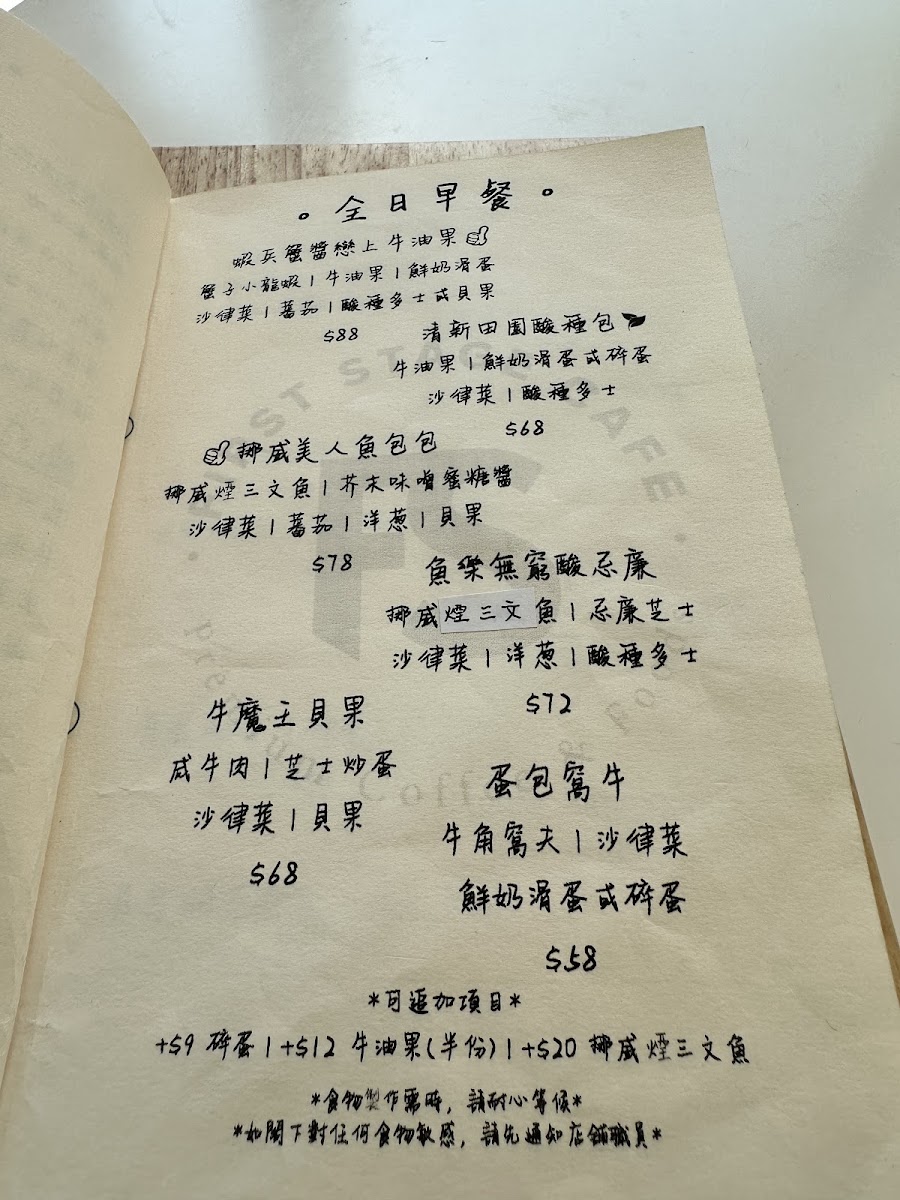 。全日早餐。
蝦兵蟹醬戀上牛油果
蟹子小龍蝦|牛油果|鮮奶滑蛋
沙律菜|蕃茄|酸種多士或貝果
$88
清新田園酸種包
牛油果|鮮奶滑蛋或碎蛋
沙律菜|酸種多士
$68
挪威美人魚包包
挪威煙三文魚|芥末味噌蜜糖醬
沙律菜|蕃茄|洋葱|貝果
$78
魚樂無窮酸忌廉
挪威煙三文魚|忌廉芝士
沙律菜|洋葱|酸種多士
$72
牛魔王貝果
咸牛肉|芝士炒蛋
沙律菜|貝果
$68
蛋包窩牛
牛角窩夫|沙律菜
鮮奶滑蛋或碎蛋
$58
*可追加項目*
+$9 碎蛋|+$12 牛油果(半份)|+$20 挪威煙三文魚
*食物製作需時，請耐心等候*
*如閣下對任何食物敏感，請先通知店舖職員*